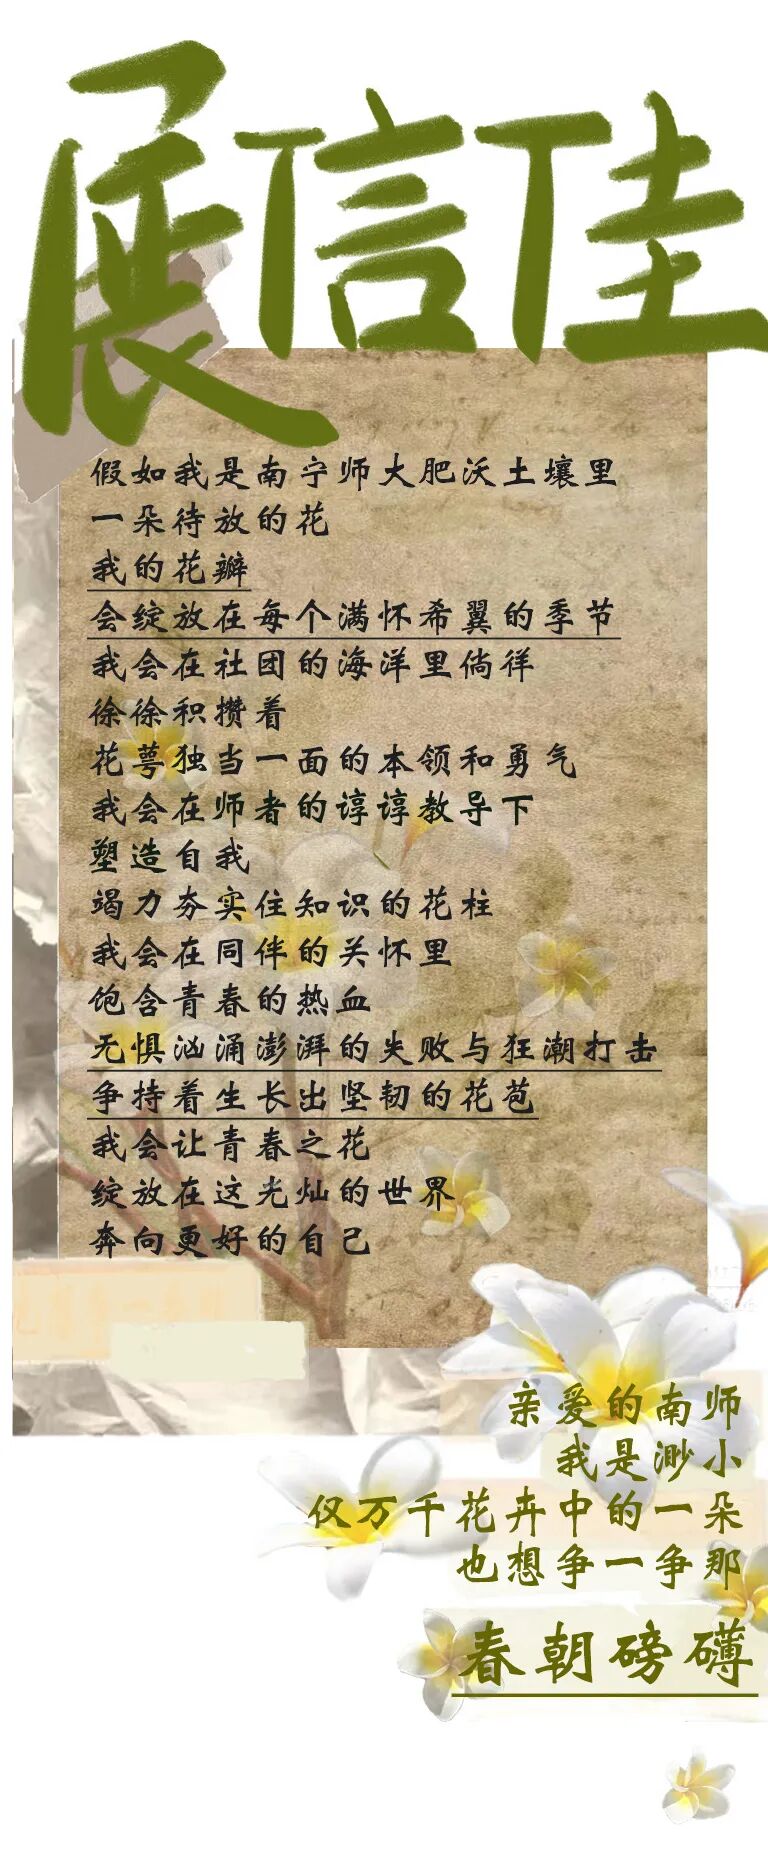 展信佳
假如我是南宁师大肥沃土壤里
一朵待放的花
我的花瓣
会绽放在每个满怀希翼的季节
我会在社团的海洋里倘徉
徐徐积攒着
花萼独当一面的本领和勇气
我会在师者的谆谆教导下
塑造自我
竭力夯实住知识的花柱
我会在同伴的关怀里
饱含青春的热血
无惧汹涌澎湃的失败与狂潮打击
争持着生长出坚韧的花苞
我会让青春之花
绽放在这光灿的世界
奔向更好的自己
亲爱的南师
我是渺小
仅万千花卉中的一朵
也想争一争那
春朝磅礴